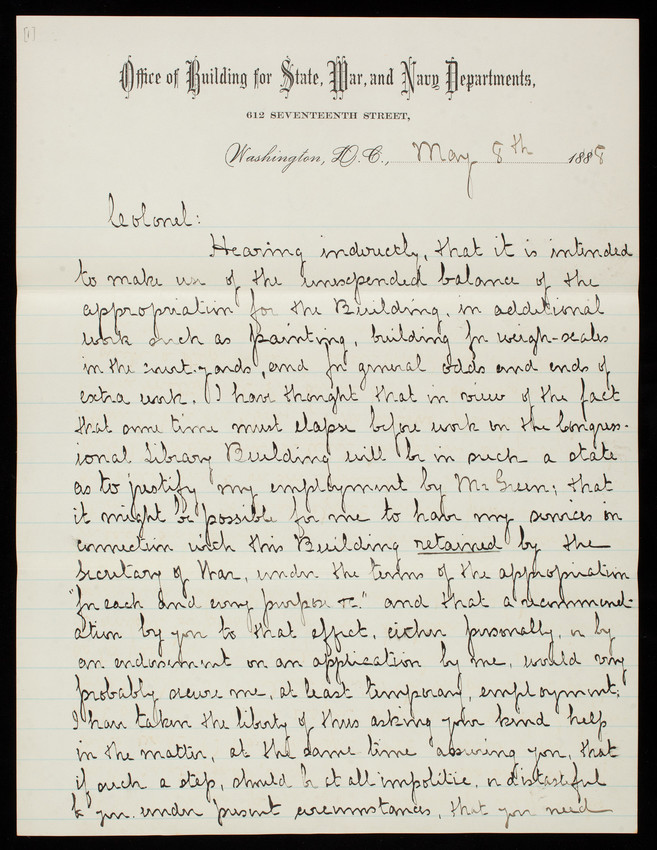 [1]
Office of Building for State, War, and Navy Departments,
612 SEVENTEENTH STREET,
Washington, D.C., May 8th 1888
Colonel:
Hearing indirectly, that it is intended
to make use of the unexpended balance of the
appropriation for the Building, in additional
work such as painting, building for weigh-scales
in the court-yards, and for general odds and ends of
extra work. I have thought that in view of the fact
that some time must elapse before work on the Congress-
ional Library Building will be in such a state
as to justify my employment by Mr Green; that
it might be possible for me to have my services in
connection with this Building retained by the
Secretary of War, under the terms of the appropriation
"for each and every purpose &c." and that a recommend-
ation by you to that effect, either personally, or by
an endorsement on an application by me, would very
probably secure me, at least temporary, employment.
I have taken the liberty of thus asking your kind help
in the matter, at the same time assuring you, that
if such a step, should be at all impolitic, or distasteful
to you under present circumstances, that you need